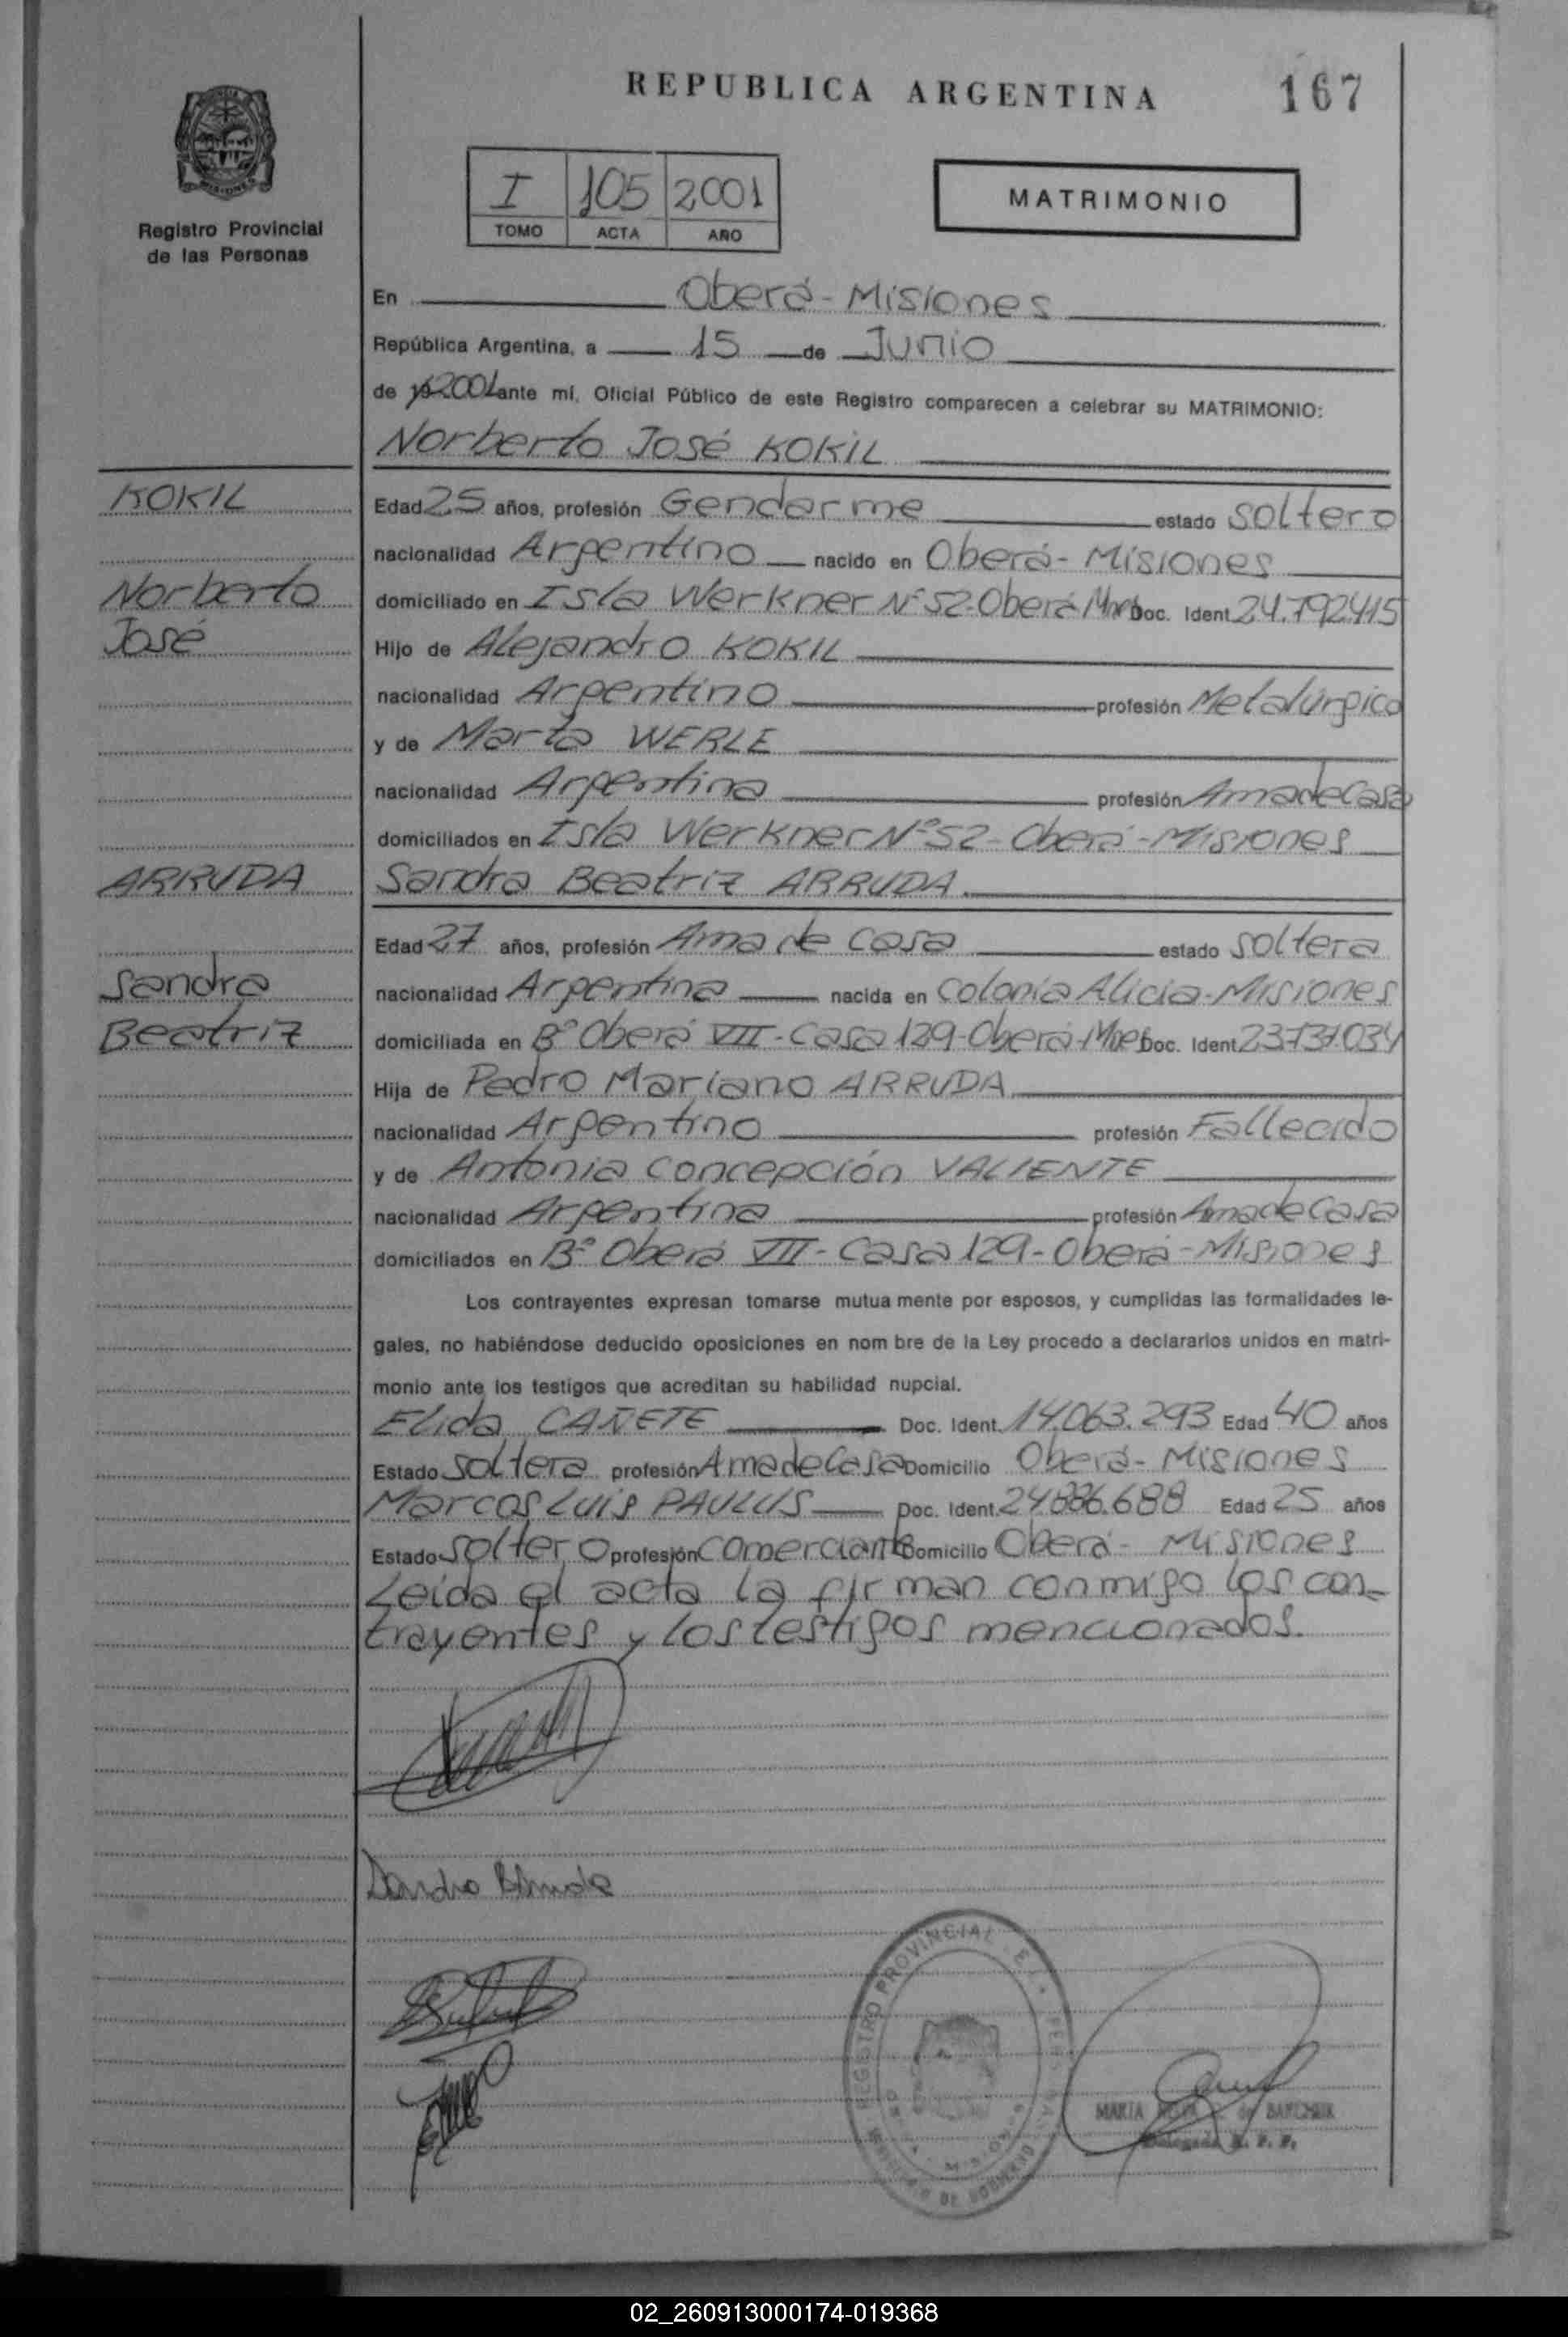 REPUBLICA ARGENTINA
167
Registro Provincial
de las Personas
I 105 2001
TOMO ACTA AÑO
MATRIMONIO
En Oberá - Misiones
República Argentina, a 15 de Junio
de 2001 ante mí, Oficial Público de este Registro comparecen a celebrar su MATRIMONIO:
Norberto José KOKIL
KOKIL
Norberto
José
Edad 25 años, profesión Gendarme estado soltero
nacionalidad Argentino nacido en Oberá - Misiones
domiciliado en Isla Werkner Nº 52-Oberá-Mnes Doc. Ident. 24.792.415
Hijo de Alejandro KOKIL
nacionalidad Argentino profesión Metalúrgico
y de Marta WERLE
nacionalidad Argentina profesión Ama de Casa
domiciliados en Isla Werkner Nº 52 - Oberá - Misiones
ARRUDA
Sandra
Beatriz
Sandra Beatriz ARRUDA
Edad 27 años, profesión Ama de Casa estado soltera
nacionalidad Argentina nacida en Colonia Alicia - Misiones
domiciliada en Bº Oberá VII - Casa 129-Oberá- Doc. Ident. 23.737.034
Hija de Pedro Mariano ARRUDA
nacionalidad Argentino profesión Fallecido
y de Antonia Concepción VALIENTE
nacionalidad Argentina profesión Ama de Casa
domiciliados en Bº Oberá VII - Casa 129 - Oberá - Misiones
Los contrayentes expresan tomarse mutua mente por esposos, y cumplidas las formalidades le-
gales, no habiéndose deducido oposiciones en nom bre de la Ley procedo a declararlos unidos en matri-
monio ante los testigos que acreditan su habilidad nupcial.
Elida CAÑETE Doc. Ident. 14.063.293 Edad 40 años
Estado soltera profesión Ama de Casa Domicilio Oberá - Misiones
Marcos Luis PAULUS Doc. Ident. 24.886.688 Edad 25 años
Estado soltero profesión comerciante Domicilio Oberá - Misiones
Leída el acta la firman conmigo los con-
trayentes y los testigos mencionados.
Sandra B Arruda
REGISTRO PROVINCIAL
MARIA
Delegada R. P. P.
02_260913000174-019368